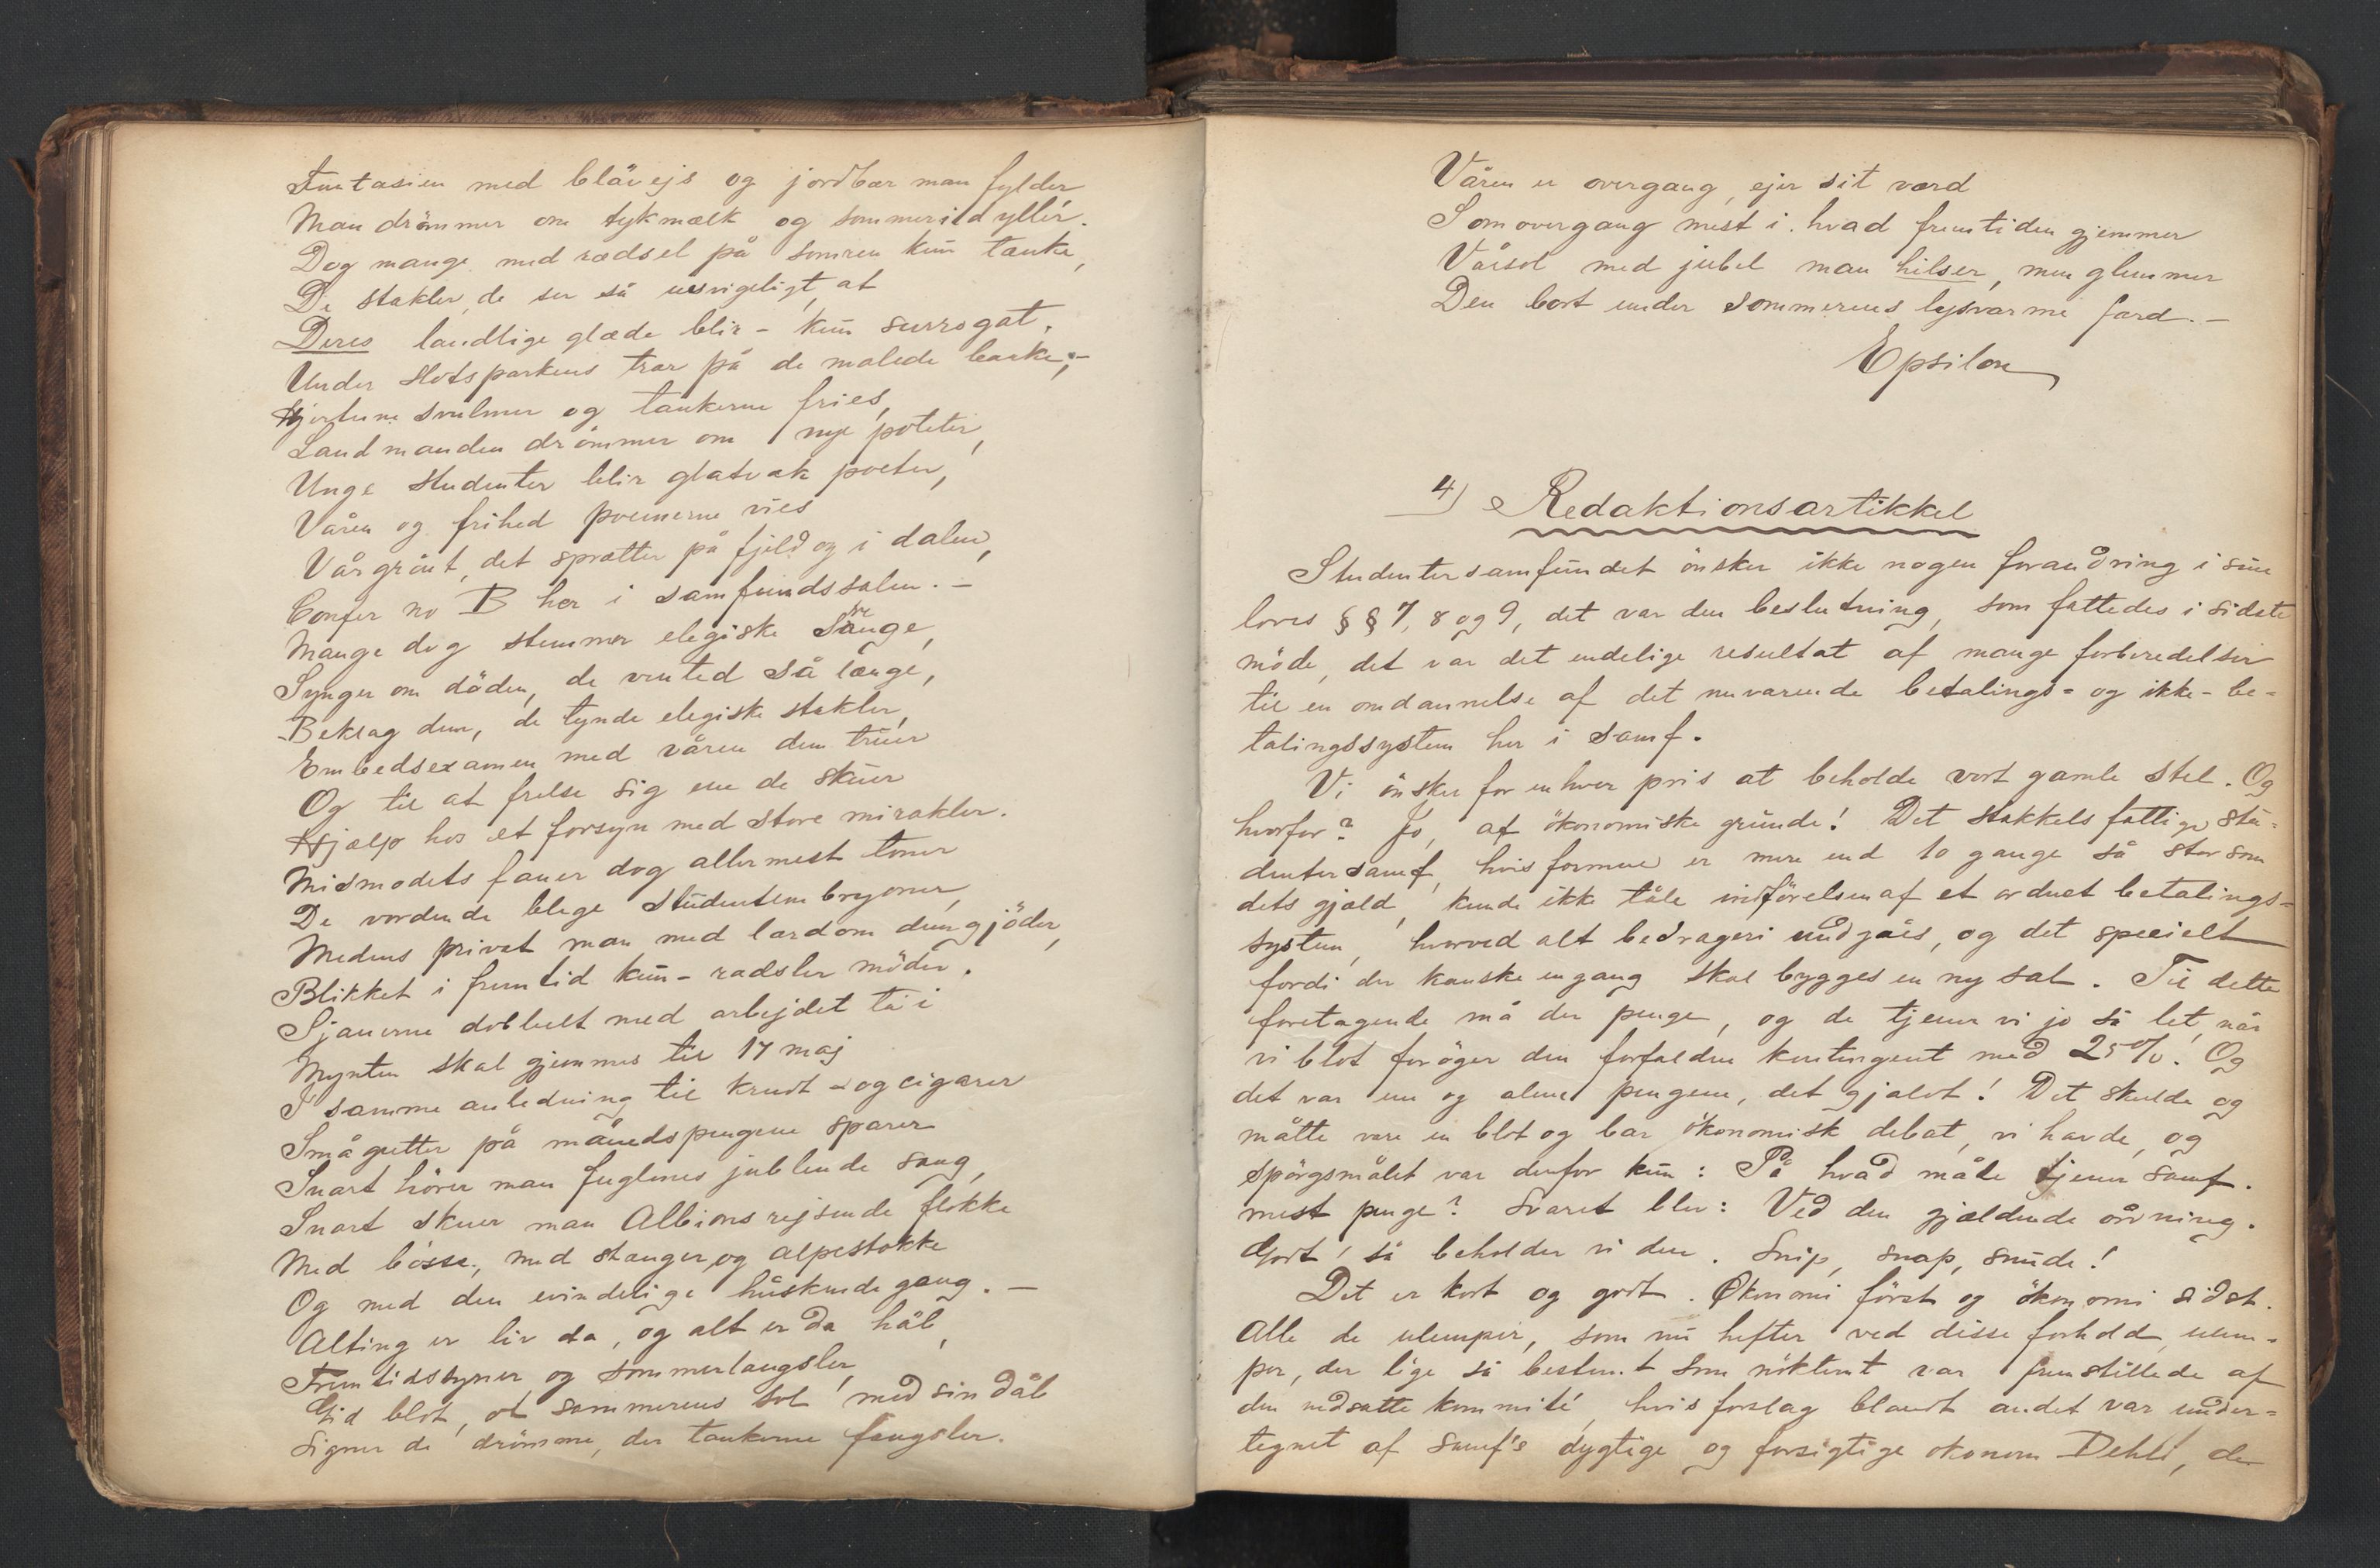 Fantasien med blåvejs og jordbær man fylder
Man drömmer om tykmælk og sommeridyller.
Dog mange med rædsel på somren kun tænke,
De stakler, de ser så usvigeligt, at
Deres landlige glæde blir - kun surrogat,
Under slotsparkens trær på de malede bænke; -
Hjerterne svulmer og tankerne fries,
Landmanden drömmer om nye poteter,
Unge studenter blir glatvæk poeter,
Våren og frihed poemerne vies
Vårgrönt, det sprætter på fjeld og i dalen,
Confer no B her i samfundssalen. -
Mange dog stemmer elegiske strænge,
Synger om döden, de vented så længe,
Beklag dem, de tynde elegiske stakler,
Embedsexamen med våren dem truer
Og til at frelse sig ene de skuer
Hjælp hos et forsyn med store mirakler.
Mismodets faner dog allermest toner
De vordende blege studentembryoner,
Medens privat man med lærdom dem gjöder,
Blikket i fremtid kun - rædsler möder.
Sjauerne dobbelt med arbejdet ta'i
Mynten skal gjemmes til 17 maj
I samme anledning til krudt - og cigarer
Smågutter på månedspengene sparer
Snart hörer man fuglenes jublende sang,
Snart skuer man Albions rejsende flokke
Med bösse, med stanger og alpestokke
Og med den evindelige huskende gang. -
Alting er liv da, og alt er da håb,
Fremtidssyner og sommerlængsler,
Gid blot, at sommerens sol med sin dåb
Signer de drömme, der tankerne fængsler.
Våren er overgang, ejer sit værd
Som overgang mest i hvad fremtiden gjemmer
Vårsol med jubel man hilser, men glemmer
Den bort under sommerens lysvarme færd. -
Epsilon
4) Redaktionsartikkel
Studentersamfundet önsker ikke nogen forandring i sine
loves §§ 7, 8 og 9, det var den beslutning, som fattedes i sidste
möde, det var det endelige resultat af mange forberedelser
til en omdannelse af det nuværende betalings- og ikke-be-
talingssystem her i samf.
Vi önsker for enhver pris at beholde vort gamle stel. Og
hvorfor? Jo, af ökonomiske grunde! Det stakkels fattige stu-
dentersamf, hvis formue er mere end 10 gange så stor som
dets gjæld, kunde ikke tåle indförelsen af et ordnet betalings-
system, hvorved alt bedrageri undgåes, og det specielt
fordi der kanske engang skal bygges en ny sal. Til dette
foretagende må der penge, og de tjener vi jo så let, når
vi blot foröger den forfaldne kontingent med 25%. Og
det var ene og alene pengene, det gjaldt! Det skulde og
måtte være en blot og bar ökonomisk debat, vi havde, og
spörgsmålet var derfor kun: På hvad måte tjener samf.
mest penge? Svaret blev: Ved den gjældende ordning.
Godt! så beholder vi den. Snip, snap, snude!
Det er kort og godt. Ökonomi först og ökonomi sidst.
Alle de ulemper, som nu hefter ved disse forhold, ulem-
per, der lige så bestemt som nöktent var fremstillede af
den nedsatte kommité, hvis forslag blandt andet var under-
tegnet af samf's dygtige og forsigtige økonom Dehli, der